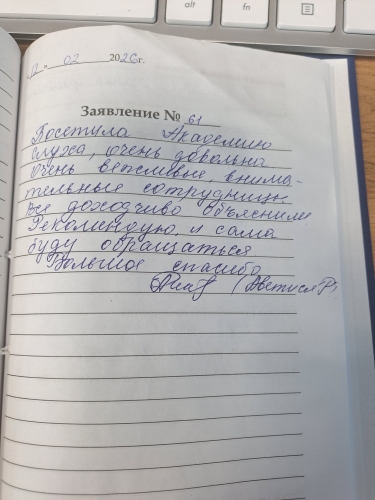 "12" 02 2026 г.
Заявление № 61
Посетила Академию
слуха, очень довольна
Очень вежливые, внима-
тельные сотрудницы
все доходчиво объяснили
Рекомендую, и сама
буду обращаться
Большое спасибо
alt
fn